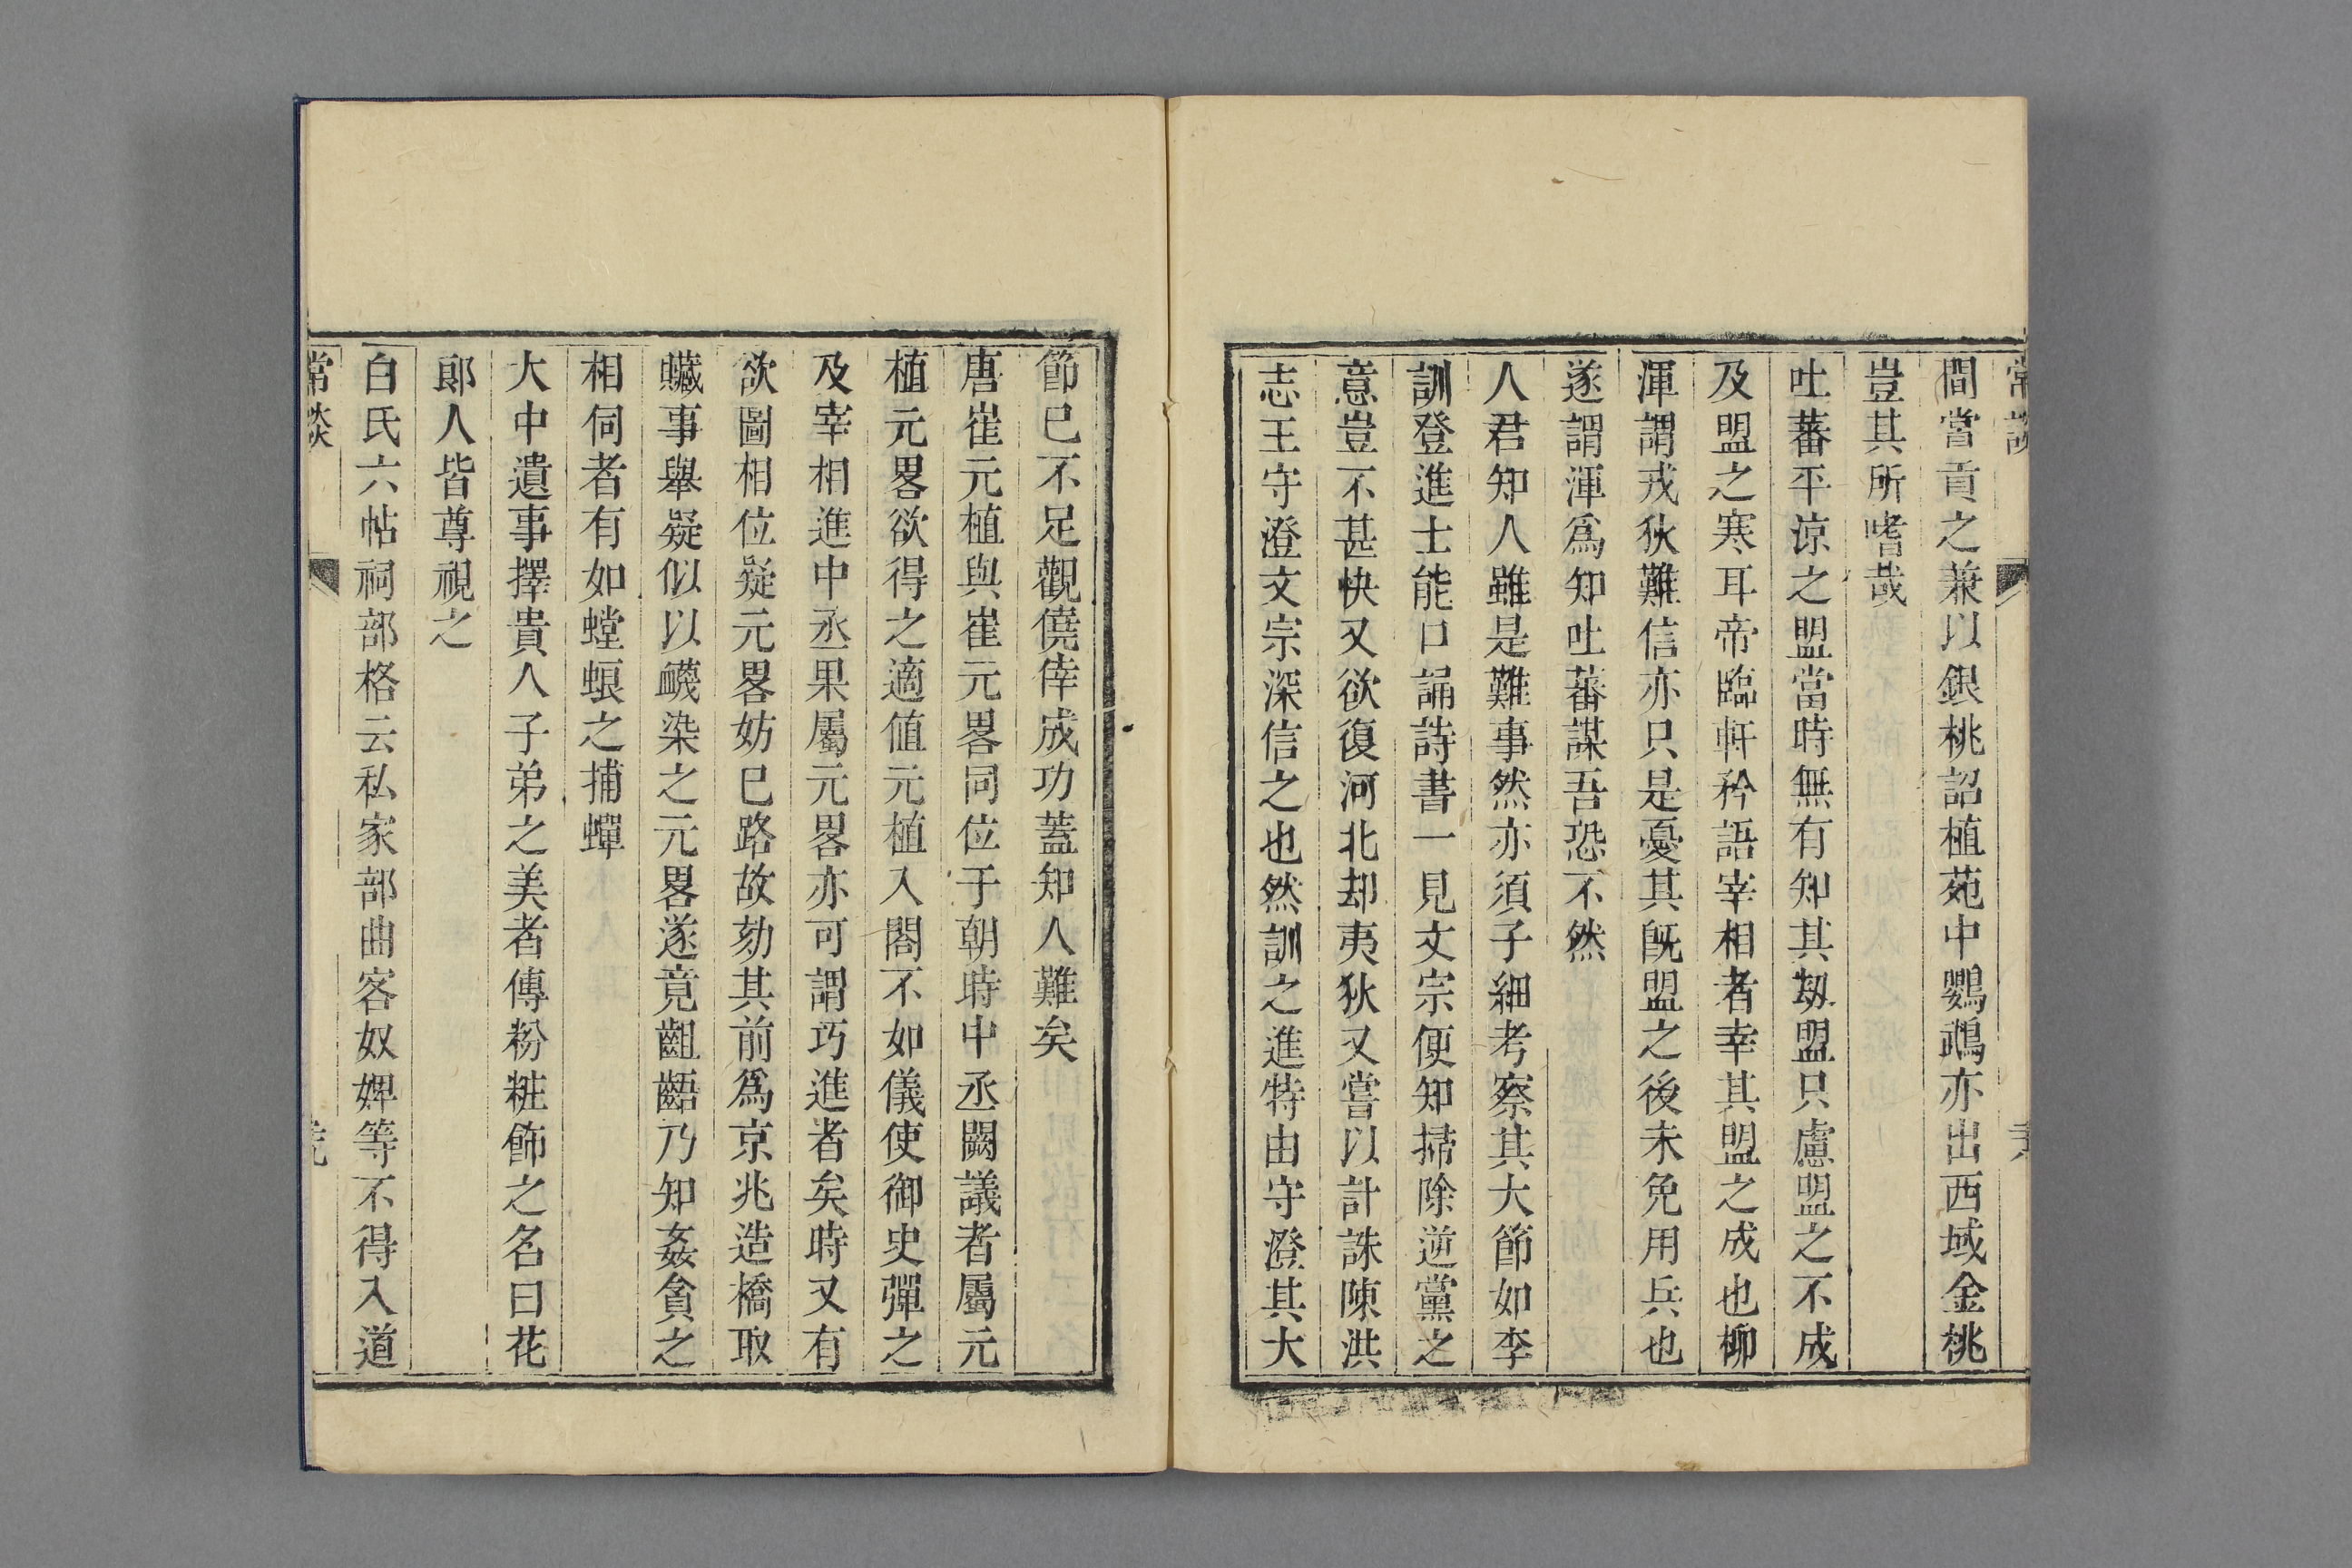 間嘗貢之兼以銀桃詔植苑中鸚鵡亦出西域金桃
豈其所嗜哉
吐蕃平涼之盟當時無有知其刼盟只慮盟之不成
及盟之寒耳帝臨軒矜語宰相者幸其盟之成也柳
渾謂戎狄難信亦只是憂其旣盟之後未免用兵也
遂謂渾爲知吐蕃謀吾恐不然
人君知人人雖是難事然亦須子細考察其大節如李
訓登進士能口誦詩書一見文宗便知掃除逆黨之
意豈不甚快又欲復河北却夷狄又嘗以計誅陳洪
志王守澄文宗深信之也然訓之進特由守澄其大
節已不足觀僥倖成功蓋知人難矣
唐崔元植與崔元畧同位于朝時中丞闕議者屬元
植元畧欲得之適值元植入閤不如儀使御史彈之
及宰相進中丞果屬元畧亦可謂巧進者矣時又有
欲圖相位疑元畧妨巳路故劾其前爲京兆造橋取
贓事舉疑似以衊染之元畧遂竟齟齬乃知姦貪之
相伺者有如螳蜋之捕蟬
大中遺事擇貴人子弟之美者傅粉粧飾之名曰花
郞人皆尊視之
白氏六帖祠部格云私家部曲客奴婢等不得入道
常談